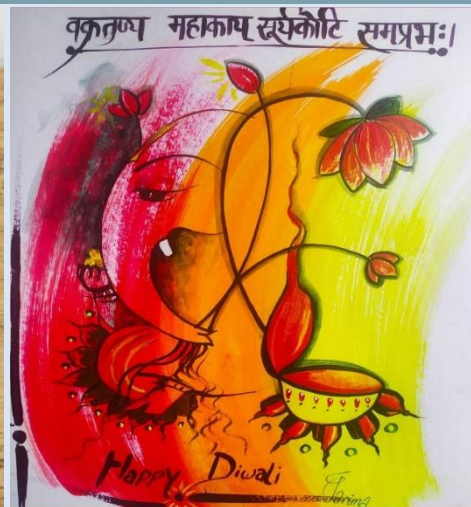 वक्रतुण्य महाकाय सूर्यकोटि समप्रभः।
Happy Diwali